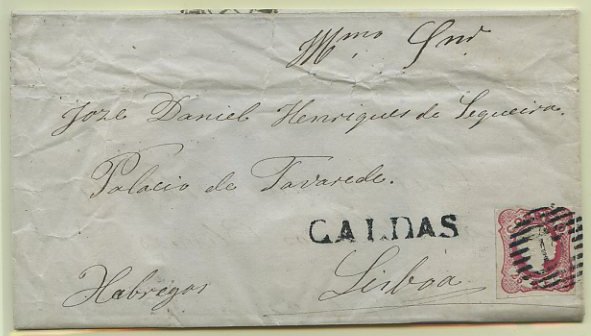 Illmo Snr
Joze Daniel Henriques de Sequeira.
Palacio de Tavarede.
CALDAS
Xabregas Lisboa